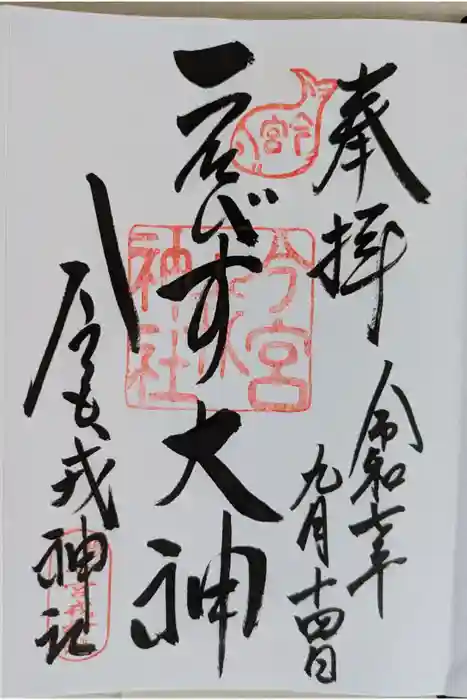 奉拝
令和七年
九月十四日
今宮
ゑびす大神
今宮戎神社
今宮戎神社